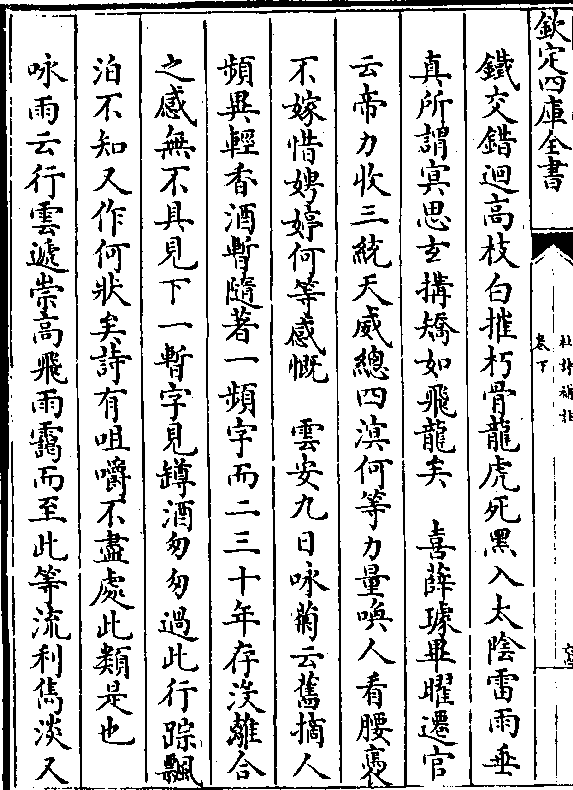 欽定四庫全書
杜詩攟
卷下
鐵交錯迴高枝白摧朽骨龍虎死黑入太陰雷雨垂
真所謂寘思玄搆矯如飛龍矣 喜薛璩畢曜遷官
云帝力收三統天威總四溟何等力量喚人看腰褭
不嫁惜娉婷何等感慨 雲安九日咏菊云舊摘人
頻異輕香酒暫隨著一頻字而二三十年存没離合
之感無不具見下一暫字見罇酒匆匆過此行踪飄
泊不知又作何狀矣詩有咀嚼不盡處此類是也
咏雨云行雲遞崇高飛雨靄而至此等流利雋淡又